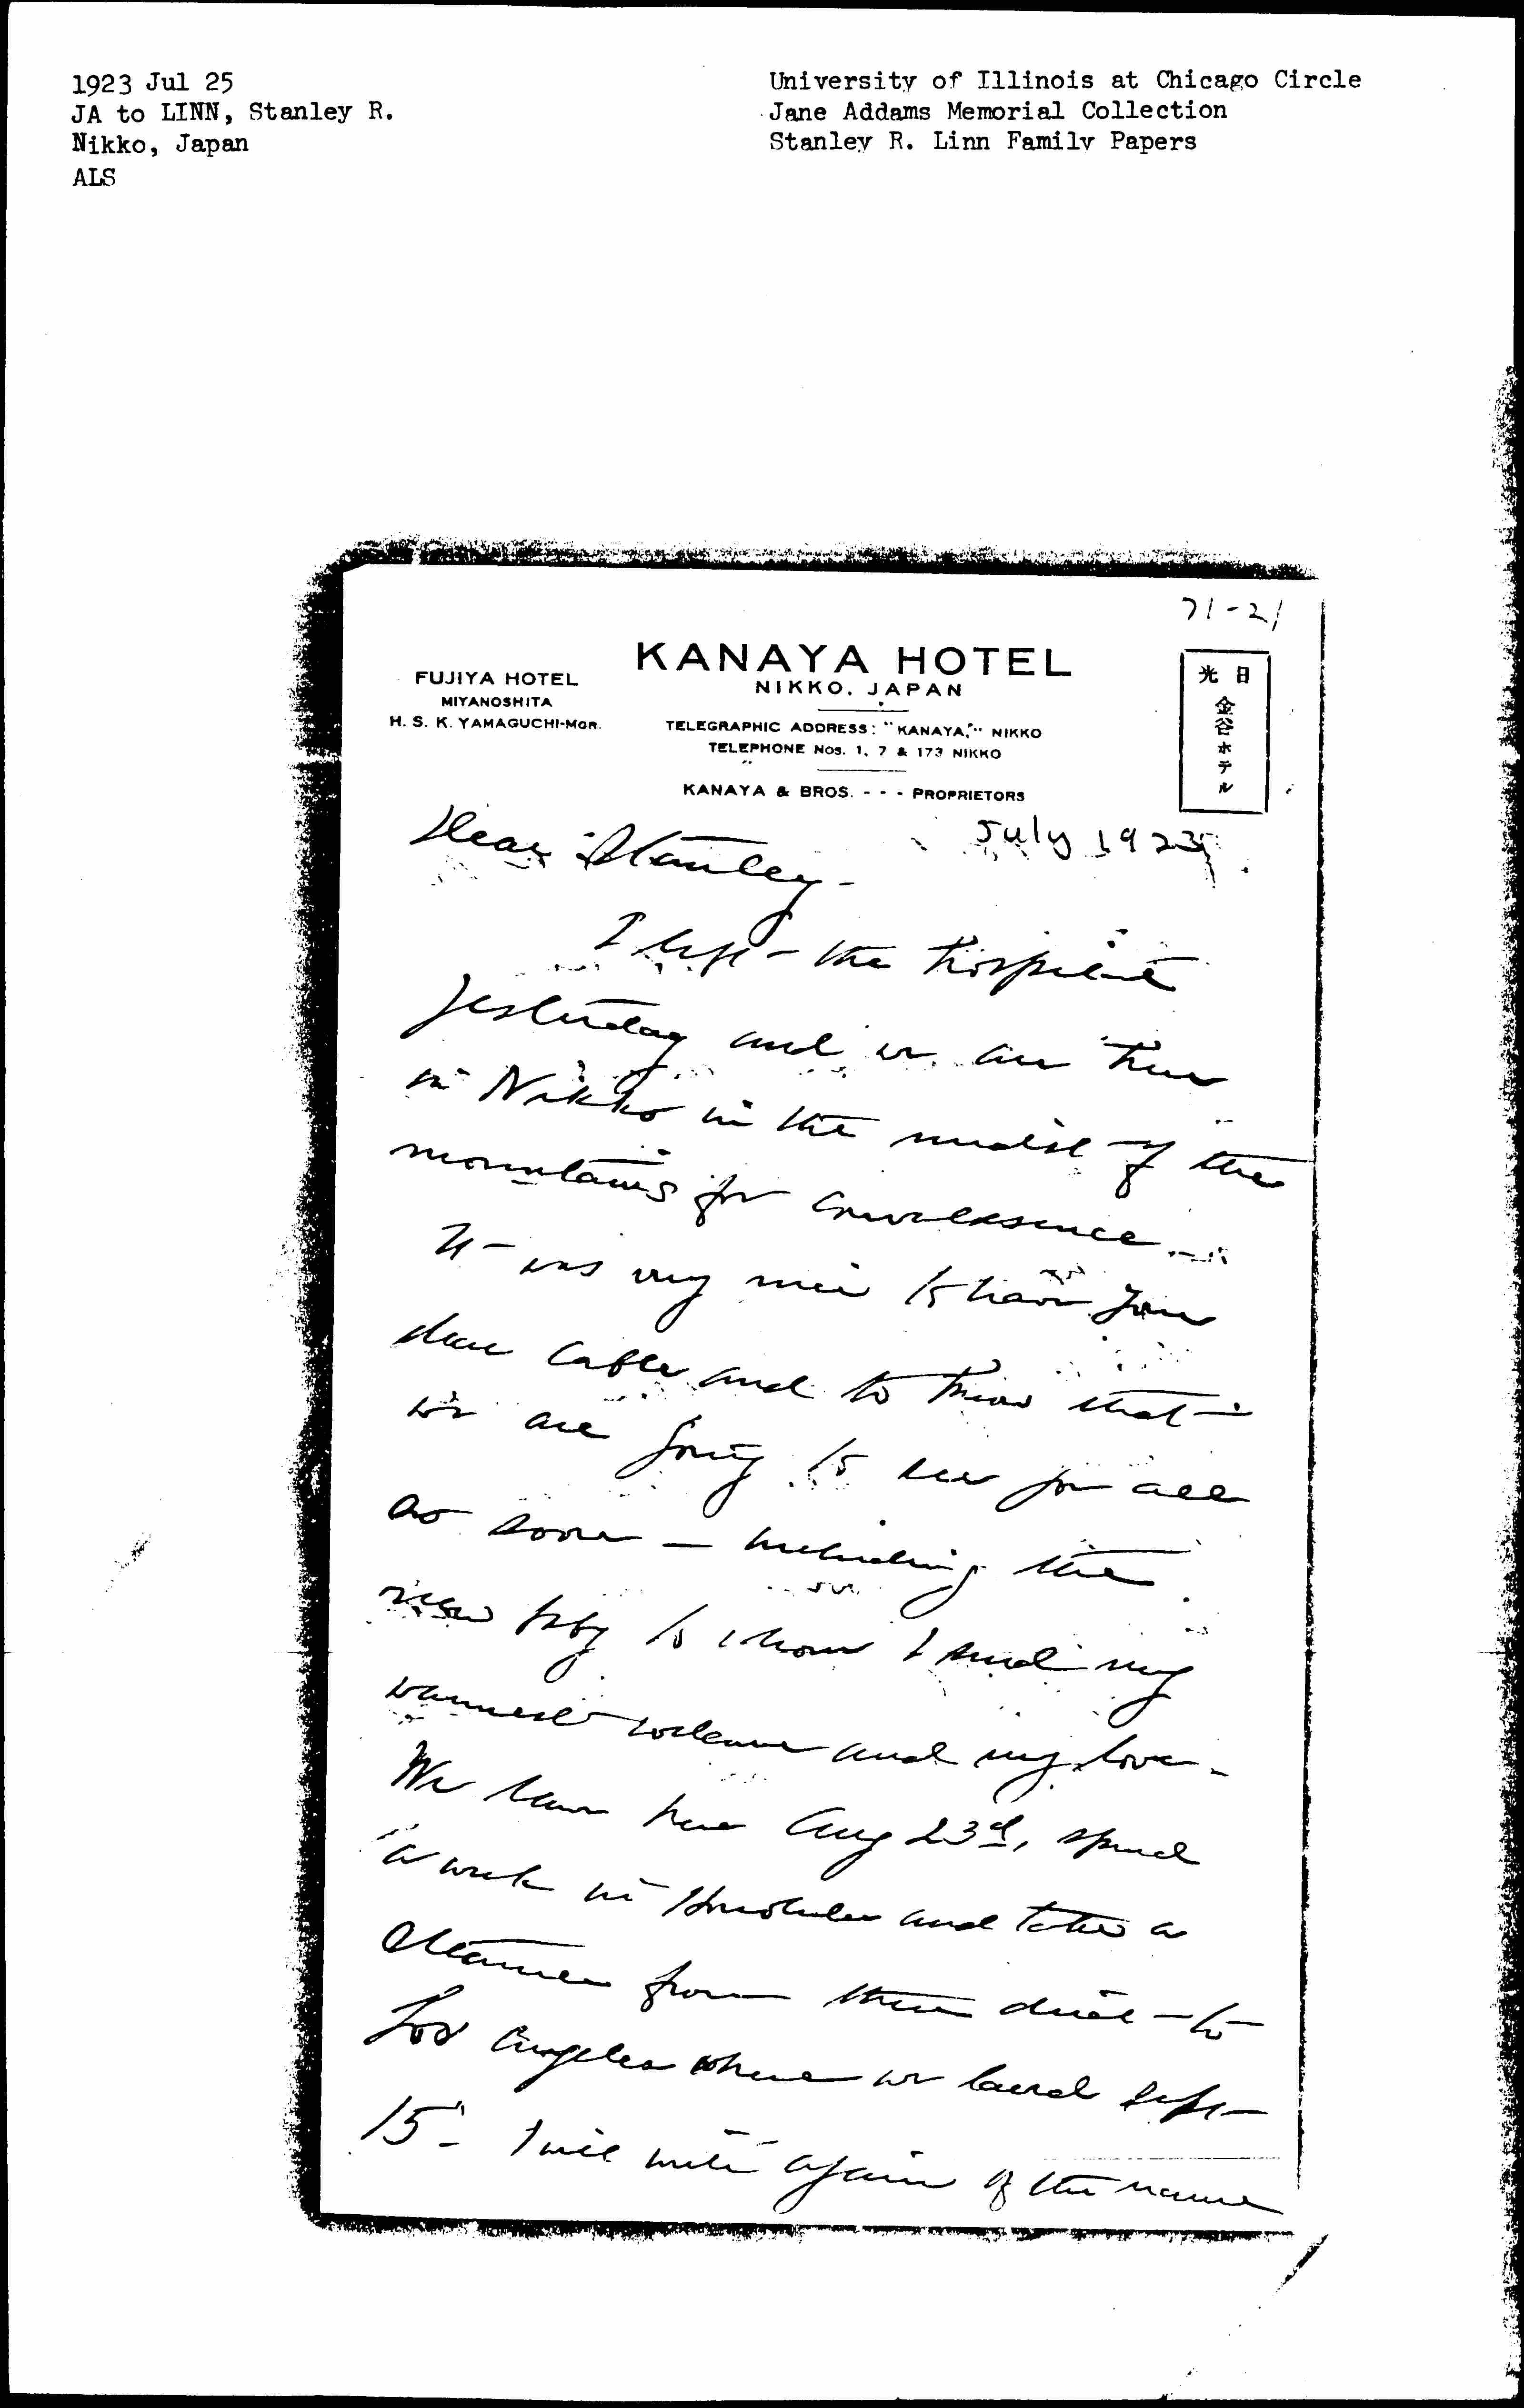 1923 Jul 25
JA to LINN, Stanley R.
Nikko, Japan
ALS
University of Illinois at Chicago Circle
Jane Addams Memorial Collection
Stanley R. Linn Family Papers
71-21
KANAYA HOTEL
NIKKO, JAPAN
FUJIYA HOTEL
MIYANOSHITA
H. S. K. YAMAGUCHI-MGR.
TELEGRAPHIC ADDRESS: "KANAYA," NIKKO
TELEPHONE NOS. 1, 7 & 173 NIKKO
KANAYA & BROS. - - - PROPRIETORS
日光
金谷ホテル
July 1923
Dear Stanley -
I left the hospital
yesterday and we are here
in Nikko in the midst of the
mountains for convalescence.
It was very nice to have your
dear cable and to know that
we are going to see you all
so soon - including the
new baby to whom I send my
warmest welcome and my love -
We leave here Aug 23d, spend
a week in Honolulu and take a
steamer from there direct to
Los Angeles where we land Sept
15 - I will write again of the name